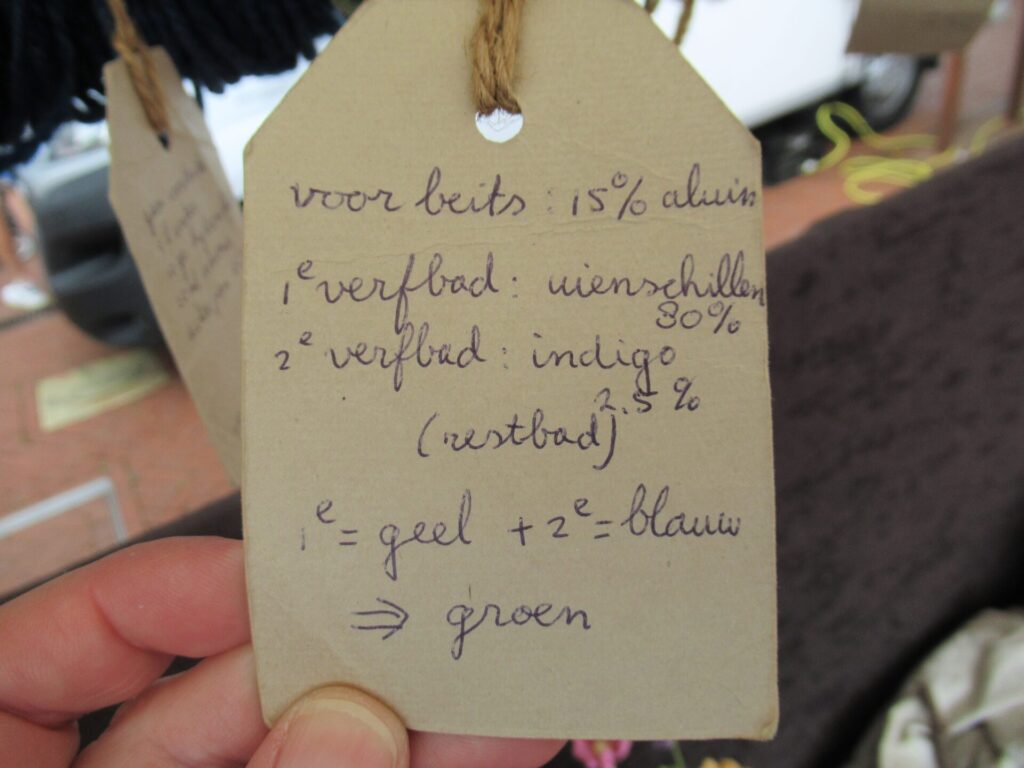 voor beits : 15% aluin
1e verfbad : uienschillen
30%
2e verfbad : indigo
2.5%
(restbad)
1e = geel + 2e = blauw
⇒ groen